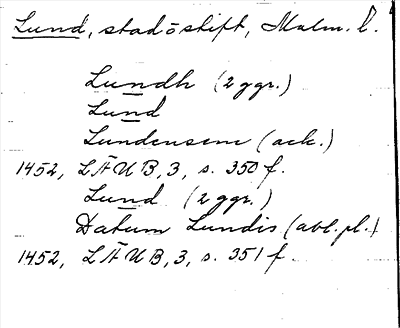 Lund, stad o stift, Malm. l.
Lundh (2 ggr.)
Lund
Lundensem (ack.)
1452, LÄUB, 3, s. 350 f.
Lund (2 ggr.)
Datum Lundis (abl. pl.)
1452, LÄUB, 3, s. 351 f.